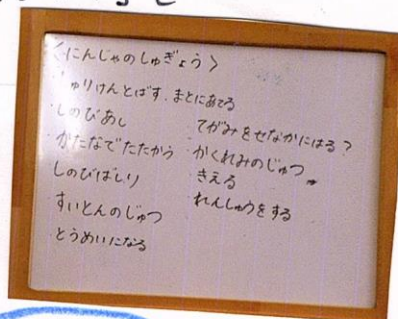 〈にんじゃのしゅぎょう〉
しゅりけんとばす、まとにあてる
しのびあし
かたなでたたかう
しのびばしり
すいとんのじゅつ
とうめいになる
てがみをせなかにはる？
かくれみのじゅつ
きえる
れんしゅうをする